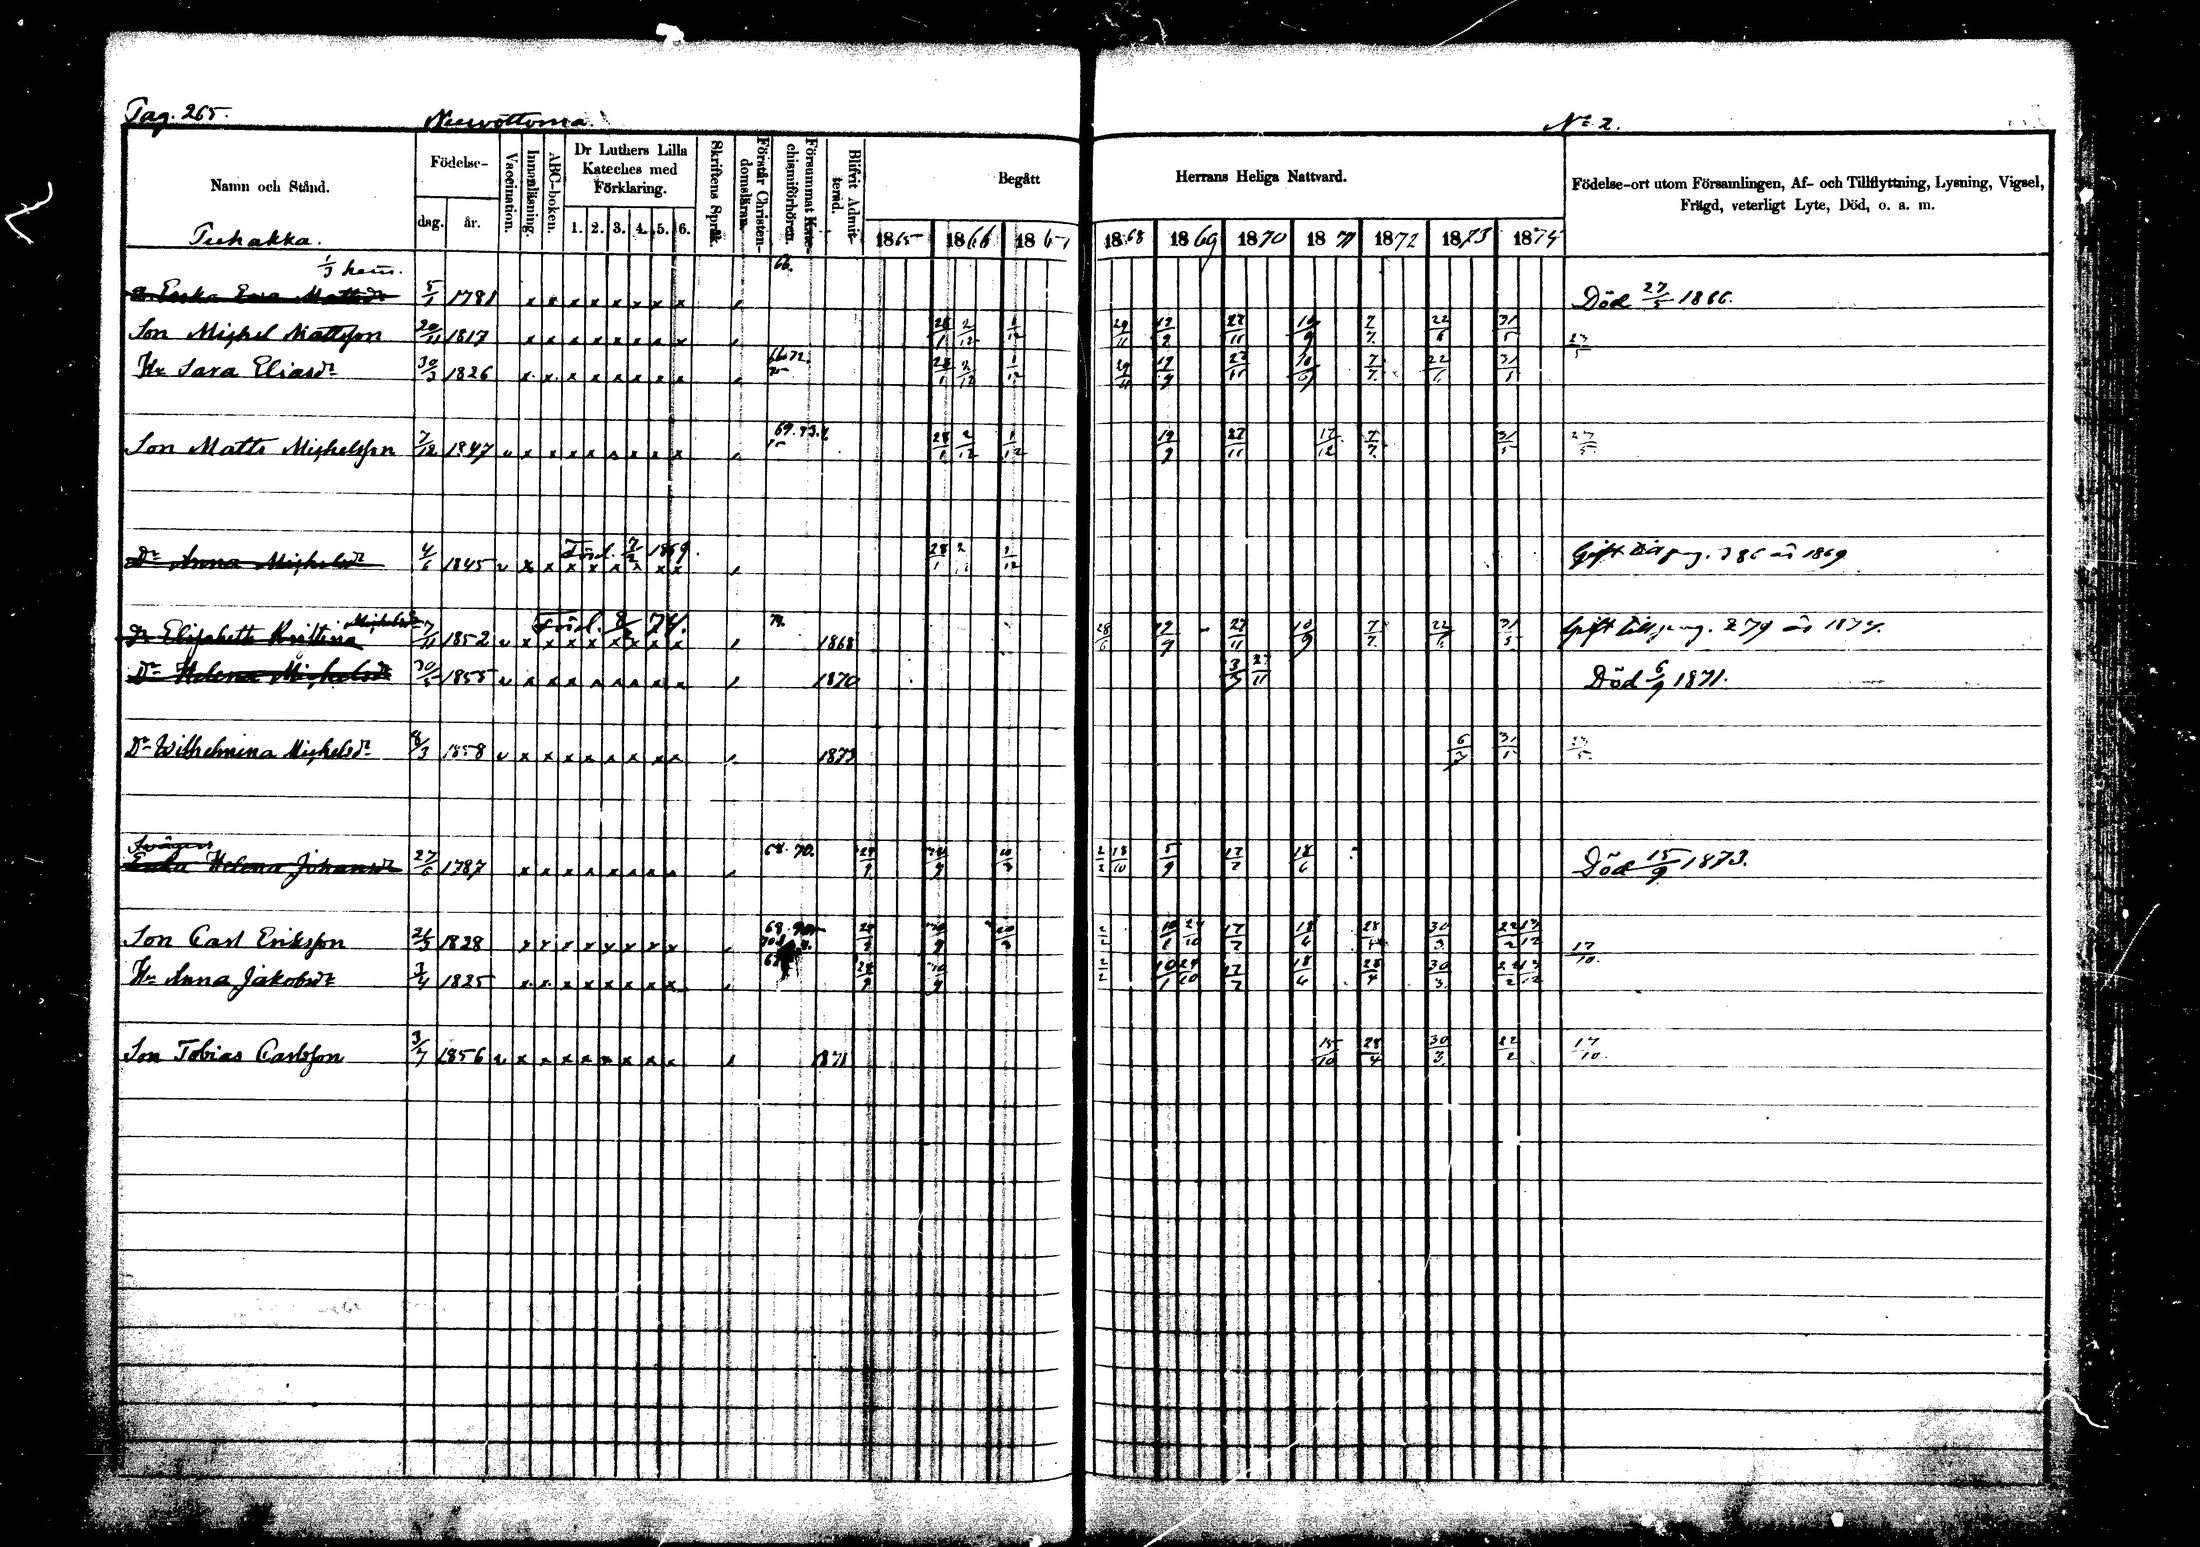 Pag. 265.
Neuvottoma.
No 2.
Namn och Stånd.
Födelse-
dag. år.
Vaccination.
Innanläsning.
ABC-boken.
Dr Luthers Lilla Kateches med Förklaring.
1. 2. 3. 4. 5. 6.
Skriftens Språk.
Förstår Christendomsläran.
Försummat Katechismiförhören.
Blifvit Admitterad.
Begått Herrans Heliga Nattvard.
1865 1866 1867 1868 1869 1870 1871 1872 1873 1874
Födelse-ort utom Församlingen, Af- och Tillflyttning, Lysning, Vigsel,
Frägd, veterligt Lyte, Död, o. a. m.
Tuhakka.
1/3 hem.
66.
Enka Eva Mattsdr 5/1 1781 Död 27/5 1866.
Son Michel Mattsson 20/11 1817 28/1 2/12 1/12 29/11 19/9 27/11 10/9 7/7 22/6 31/5 23/5
Hu Sara Eliasdr 30/3 1826 66 72 28/1 2/12 1/12 29/11 19/9 27/11 10/9 7/7 22/6 31/5
Son Matts Michelsson 7/12 1847 69. 73. 28/1 2/12 1/12 19/9 27/11 17/12 7/7 31/5 23/5
Dr Anna Michelsdr 4/6 1845 Förl. 7/2 1869. 28/1 2/12 1/12 Gift till pag. 386 år 1869
Dr Elisabeth Kristina Michelsdr 7/11 1852 Förl. 8/3 74. 1868 28/6 19/9 27/11 10/9 7/7 22/6 31/5 Gift till pag. 279 år 1874.
Dr Helena Michelsdr 30/5 1855 1870 3/7 27/11 Död 6/9 1871.
Dr Wilhelmina Michelsdr 8/3 1858 1873 6/7 31/5 23/5
Svågers
Enka Helena Johansdr 27/6 1787 68. 70. 2/2 18/10 5/9 17/7 18/6 Död 15/9 1873.
Son Carl Eriksson 21/3 1828 68. 2/2 17/7 18/6 28/4 30/3 22/2 13/12 17/10.
Hu Anna Jakobsdr 3/4 1825 2/2 17/7 18/6 28/4 30/3 22/2 13/12
Son Tobias Carlsson 3/7 1856 1871 15/10 28/4 30/3 22/2 17/10.